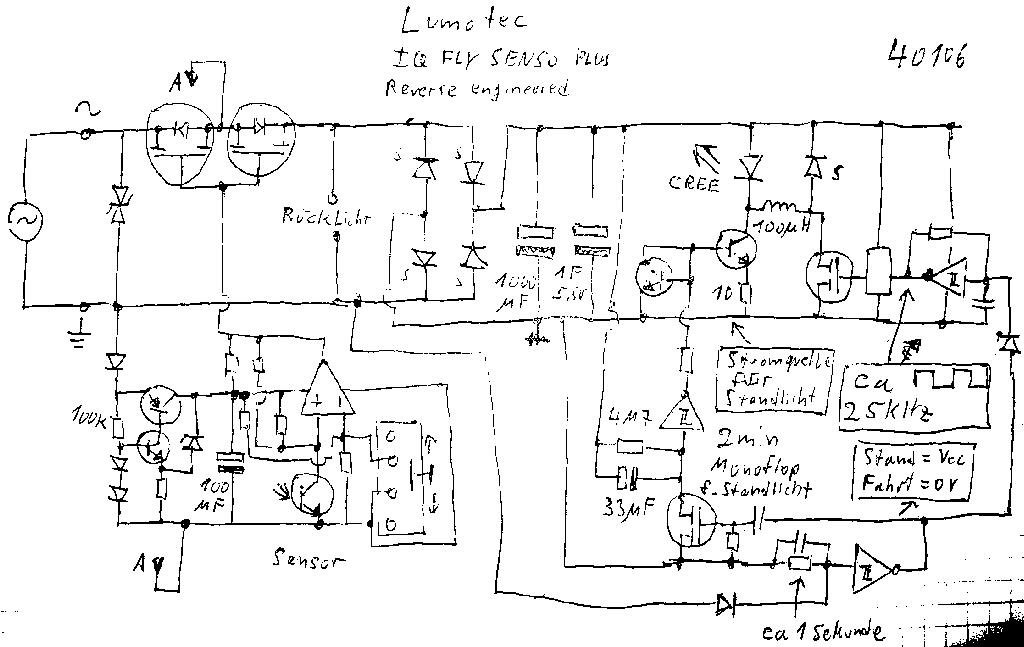 Lumotec
IQ FLY SENSO PLUS
Reverse engineered
40106
A
~
S
S
CREE
S
~
Rücklicht
100µH
S
S
1000
µF
1F
5,5V
10
Stromquelle
für
Standlicht
ca
25kHz
100K
+ -
4M7
2min
Monoflop
f. Standlicht
Stand = Vcc
Fahrt = 0V
100
µF
33µF
Sensor
A
ca 1 Sekunde